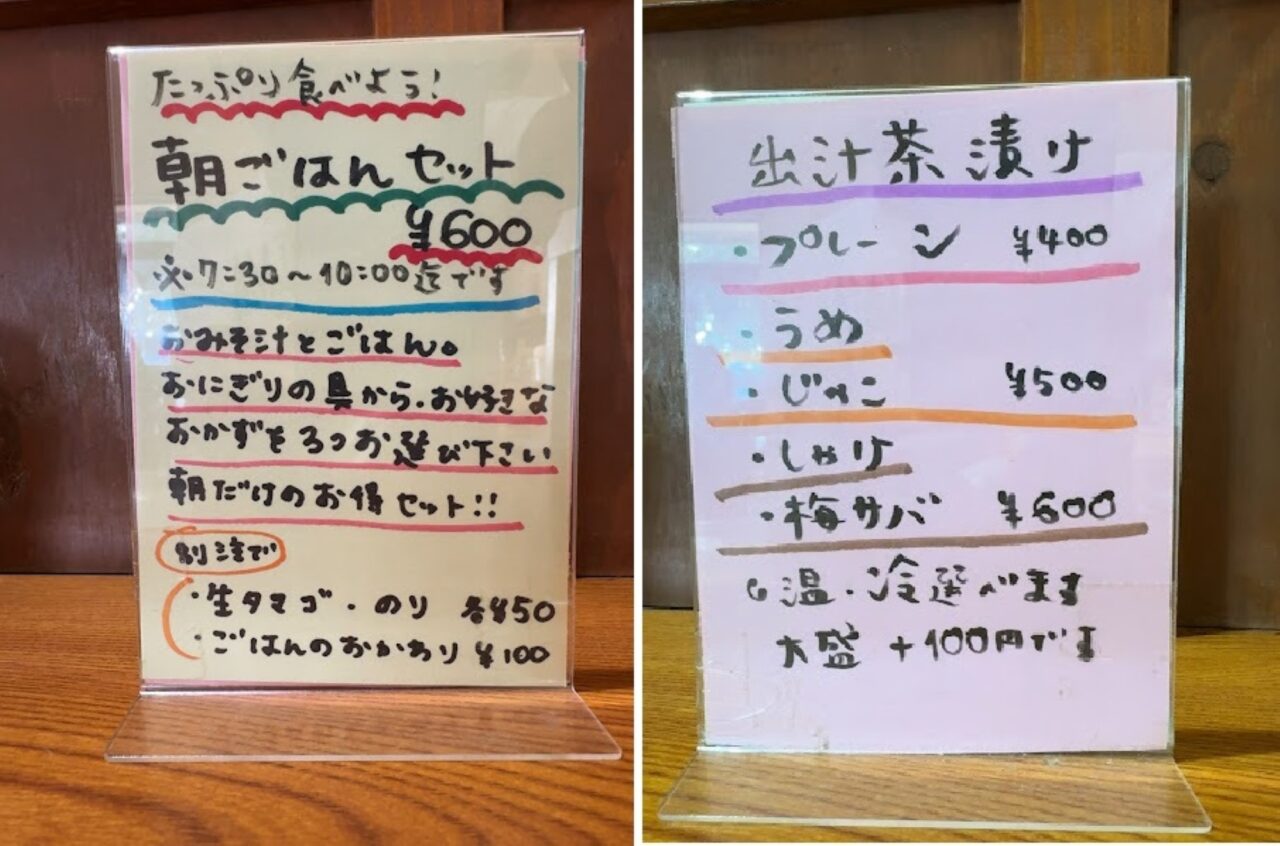 たっぷり食べよう!
朝ごはんセット
¥600
※7:30〜10:00迄です
おみそ汁とごはん。
おにぎりの具から.お好きな
おかずを3つお選び下さい
朝だけのお得セット!!
別注で
・生タマゴ・のり 各¥50
・ごはんのおかわり ¥100
出汁茶漬け
・プレーン ¥400
・うめ
・じゃこ ¥500
・しゃけ
・梅サバ ¥600
温・冷選べます
大盛 +100円です